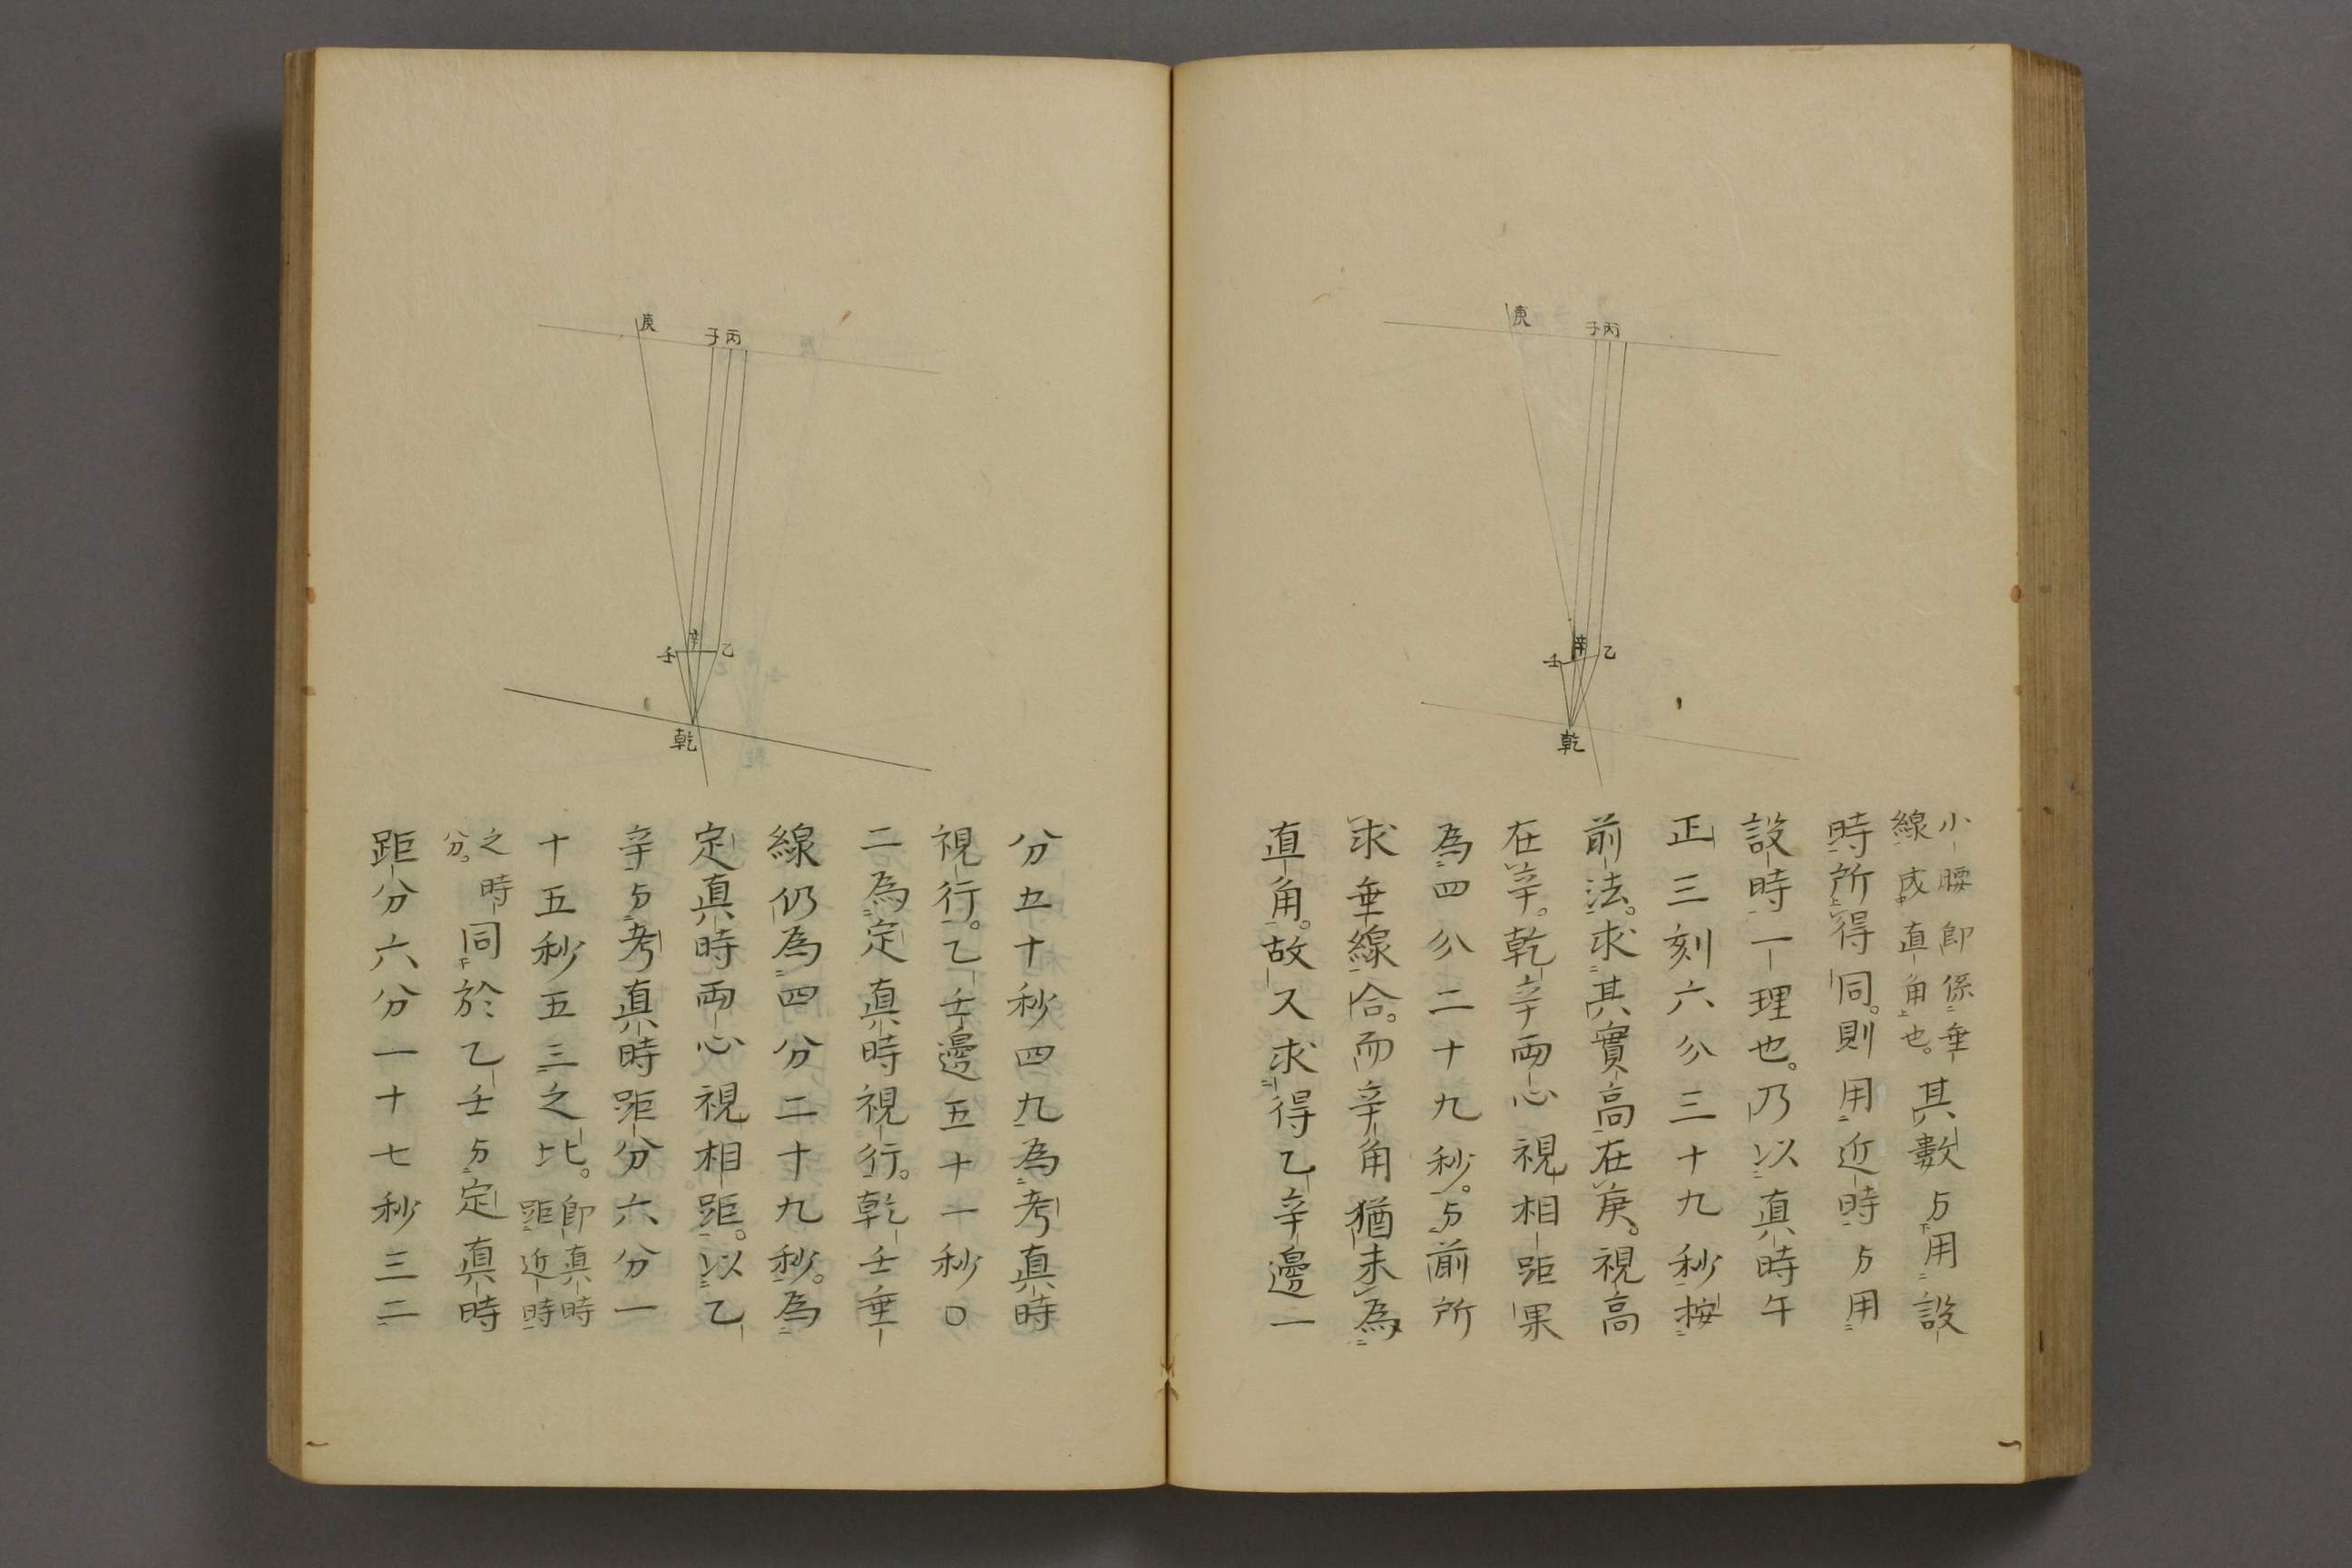 庚
子丙
辛
壬
乙
乾
小腰即係垂
線成直角也。其數与用設
時所得同。則用近時与用
設時一理也。乃以真時午
正三刻六分三十九秒按
前法。求其實高在庚。視高
在辛。乾辛兩心視相距果
為四分二十九秒。与前所
求垂線合。而辛角猶未為
直角。故又求得乙辛邊一
庚
子丙
辛
壬
乙
乾
分五十秒四九為考真時
視行。乙壬邊五十一秒〇
二為定真時視行。乾壬垂
線仍為四分二十九秒。為
定真時兩心視相距。以乙
辛与考真時距分六分一
十五秒五三之比。即真時
距近時
之時
分。同於乙壬与定真時
距分六分一十七秒三二